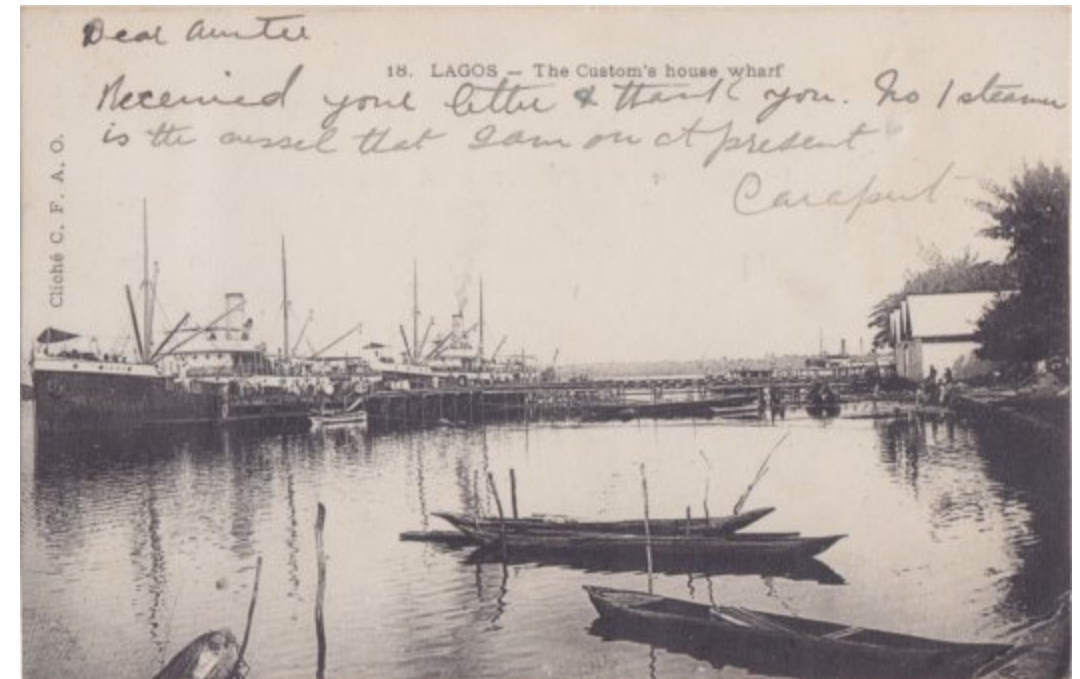 Dear Auntie
18. LAGOS — The Custom's house wharf
Received your letter & thank you. No 1 steamer
is the vessel that I am on at present
Cliché C. F. A. O.